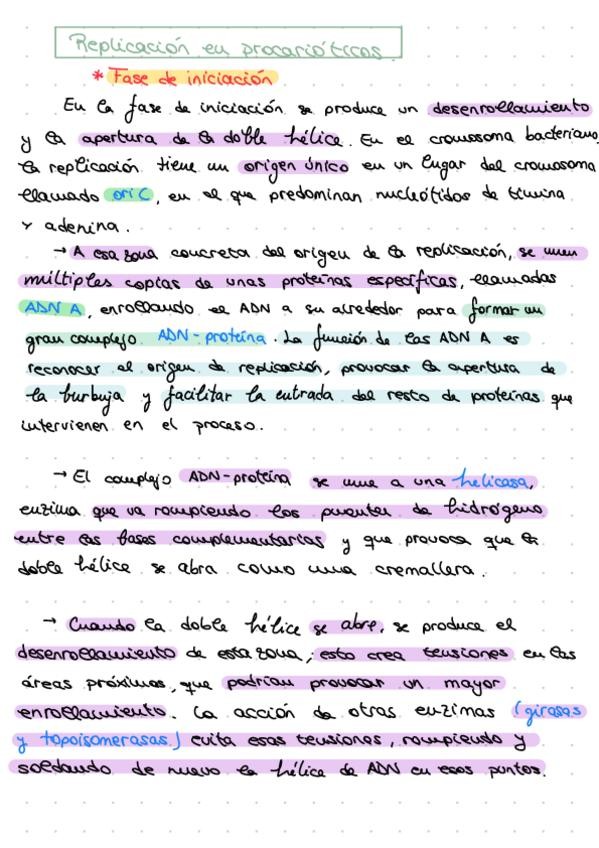 Replicación en procarióticos.
* Fase de iniciación
En la fase de iniciación se produce un desenrollamiento
y la apertura de la doble hélice. En el cromosoma bacteriano
la replicación tiene un origen único en un lugar del cromosoma
llamado oriC, en el que predominan nucleótidos de timina
y adenina.
→ A esa zona concreta del origen de la replicación, se unen
múltiples copias de unas proteínas específicas, llamadas
ADN A, enrollando el ADN a su alrededor para formar un
gran complejo ADN-proteína. La función de las ADN A es
reconocer el origen de replicación, provocar la apertura de
la burbuja y facilitar la entrada del resto de proteínas que
intervienen en el proceso.
→ El complejo ADN-proteína se une a una helicasa,
enzima que va rompiendo los puentes de hidrógeno
entre las bases complementarias y que provoca que la
doble hélice se abra como una cremallera.
→ Cuando la doble hélice se abre, se produce el
desenrollamiento de esta zona; esto crea tensiones en las
áreas próximas, que podrían provocar un mayor
enrollamiento. La acción de otras enzimas (girasas
y topoisomerasas) evita esas tensiones, rompiendo y
soldando de nuevo la hélice de ADN en esos puntos.